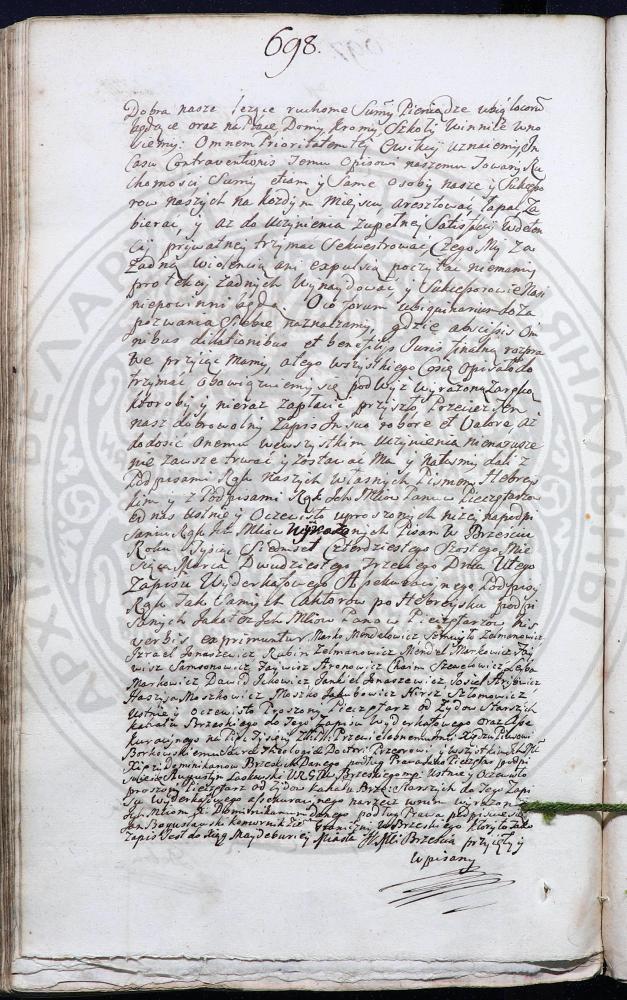 698.
Dobra nasze leżące ruchome Summy Pieniądze ubiq locorum
będące oraz na Place Domy Kromy Szkoły Winnice wno
siemy: Omnem Prioritatem tey Ewikcyi uznaiemy, In
Casu Contraventionis temu Opisowi naszemu Towary Ru
chomosci Summy etiam y Same osoby nasze y Sukcesso
row naszych na kożdym mieyscu aresztować, łapać Za
bierać, y aż do Uczynienia zupełney Satisfakcyi w deten
cyi prywatney trzymać Sekwestrować Czego My za
żadną wiolencią ani expulsią poczytać niemamy
protekcyi żadnych Wynaydować, y Sukcessorowie Nasi
niepowinni będą. Oco forum ubiquinarium do Za
pozwania Siebie naznaczamy, gdzie abscissis Om
nibus dilationibus et beneficijs Juris finalną rozpra
wę przyiąć Mamy, a tego wszystkiego cosię opisało do
trzymać obowiązuiemy się pod Wyż wyrażoną Zaręką
ktoroby y nieraz zapłacić przyszło, Przecież ten
nasz dobrowolny Zapis In suo robore et Valore, aż
do dosyć Onemu wewszystkim Uczynienia nienarusze
nie zawsze trwać y zostawać Ma, y Natosmy dali z
Podpisami Rąk Naszych Własnych Pismem Hebrey
skim y z Podpisami Rąk Ich Mciow Panow Pieczętarzow
od nas Ustnie y Oczewisto uproszonych niżey napodpi
saniu Rąk Ich Mciow Wyrażonych Pisan w Brzesciu
Roku Tysiąc Siedmset Czterdziestego Szostego Mie
siąca Marca Dwudziestego Trzeciego Dnia U tego
Zapisu Wyderkafowego Assekuracyinego Podpisy
Rąk Tak Samych Aktorow po Hebreysku podpi
sanych Jako też Ich Mciow Panow Pieczętarzow his
verbis exprimuntur. Marko Mendelowicz Szmuyło Zelmanowicz
Izrael Ionaszewicz Rubin Zelmanowicz Mendel Markowicz Fay
wisz Samsonowicz Faywisz Aronowicz Chaim Szawelowicz Leyba
Markowicz Dawid Ickowicz Jankiel Ionaszewicz Josiel
Moszkowicz Moszko Jakubowicz Hirsz Szlomowicz
Ustnie y oczewisto Proszony Pieczętarz od Żydow Starszych
kahału Brzeskiego do tego Zapisu Wyderkafowego oraz Asse
kuracyinego
Borkowskiemu Theologiae Doctori Przeorowi y Wszystkim
Dominikanow Brzeskich Danego podług Prawa Jako Pieczętarz podpi
suię się Augustyn Laskowski Ustnie y Oczewisto
proszony Pieczętarz od Żydow kahału Brze: Starszych do tego Zapi
su Wyderkafowego assekuracyinego narzecz wnim wyrażoną
Ich Mciom XX Dominikanom danego podług Prawa podpisuię się
Jan Bogusławski Komornik Graniczny W Brzeskiego Ktory to
Zapis Iest do Xiąg Maydeburiey Miasta Brzescia przyięty y
wpisany